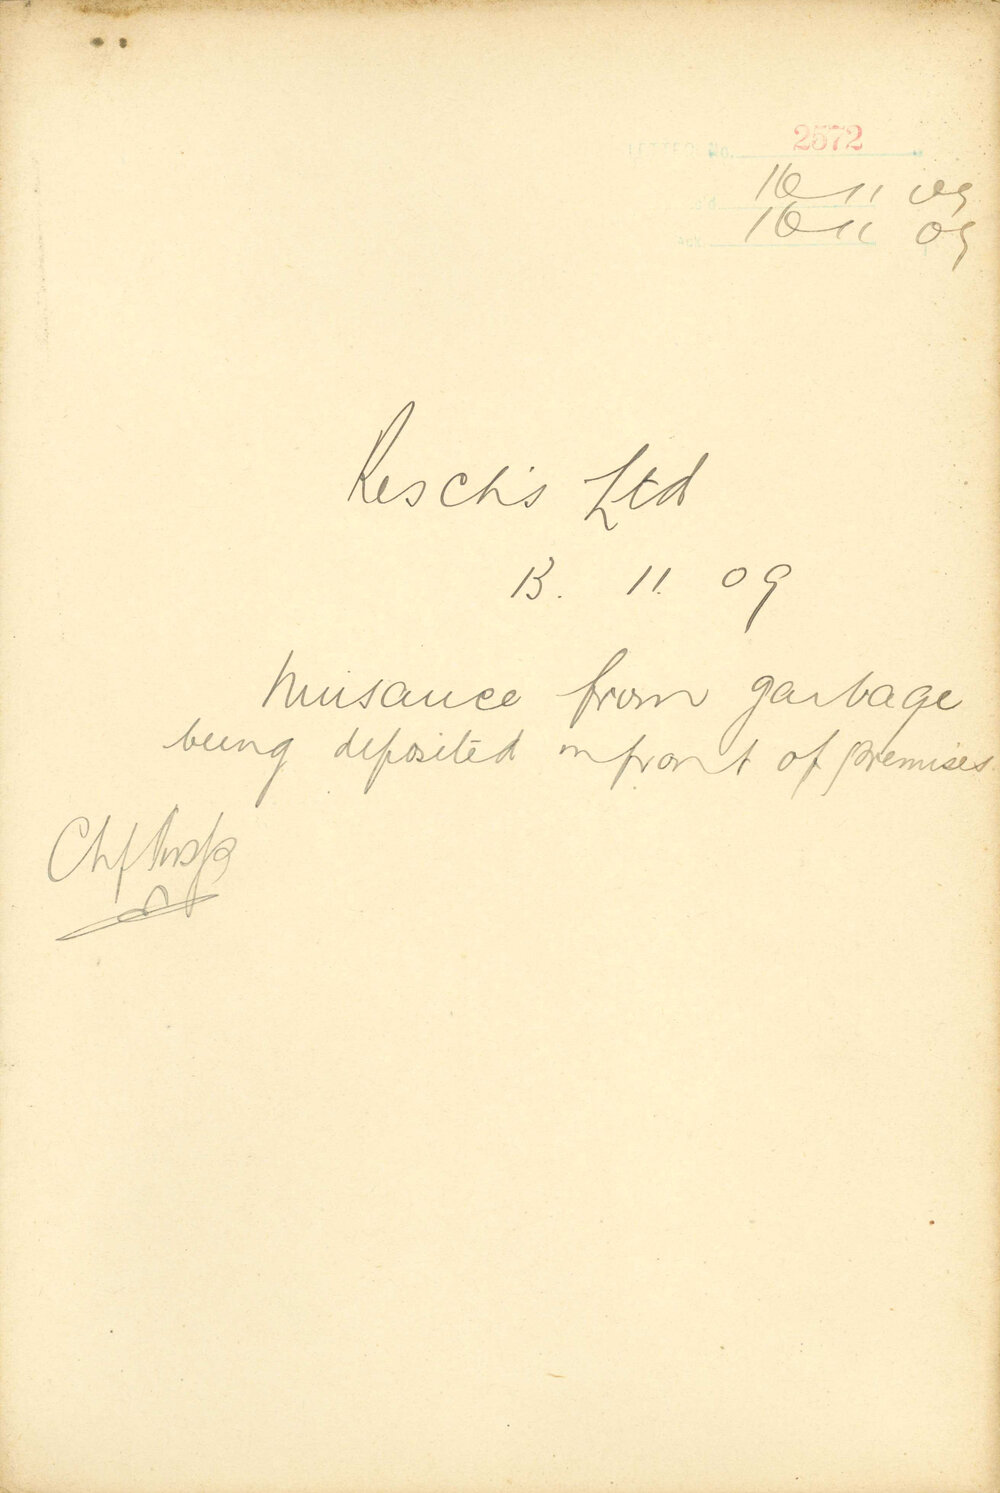 LETTER No. 2572
16 11 09
16 11 09
Resch's Ltd
13. 11. 09
Nuisance from garbage
being deposited in front of premises
Chf Insp